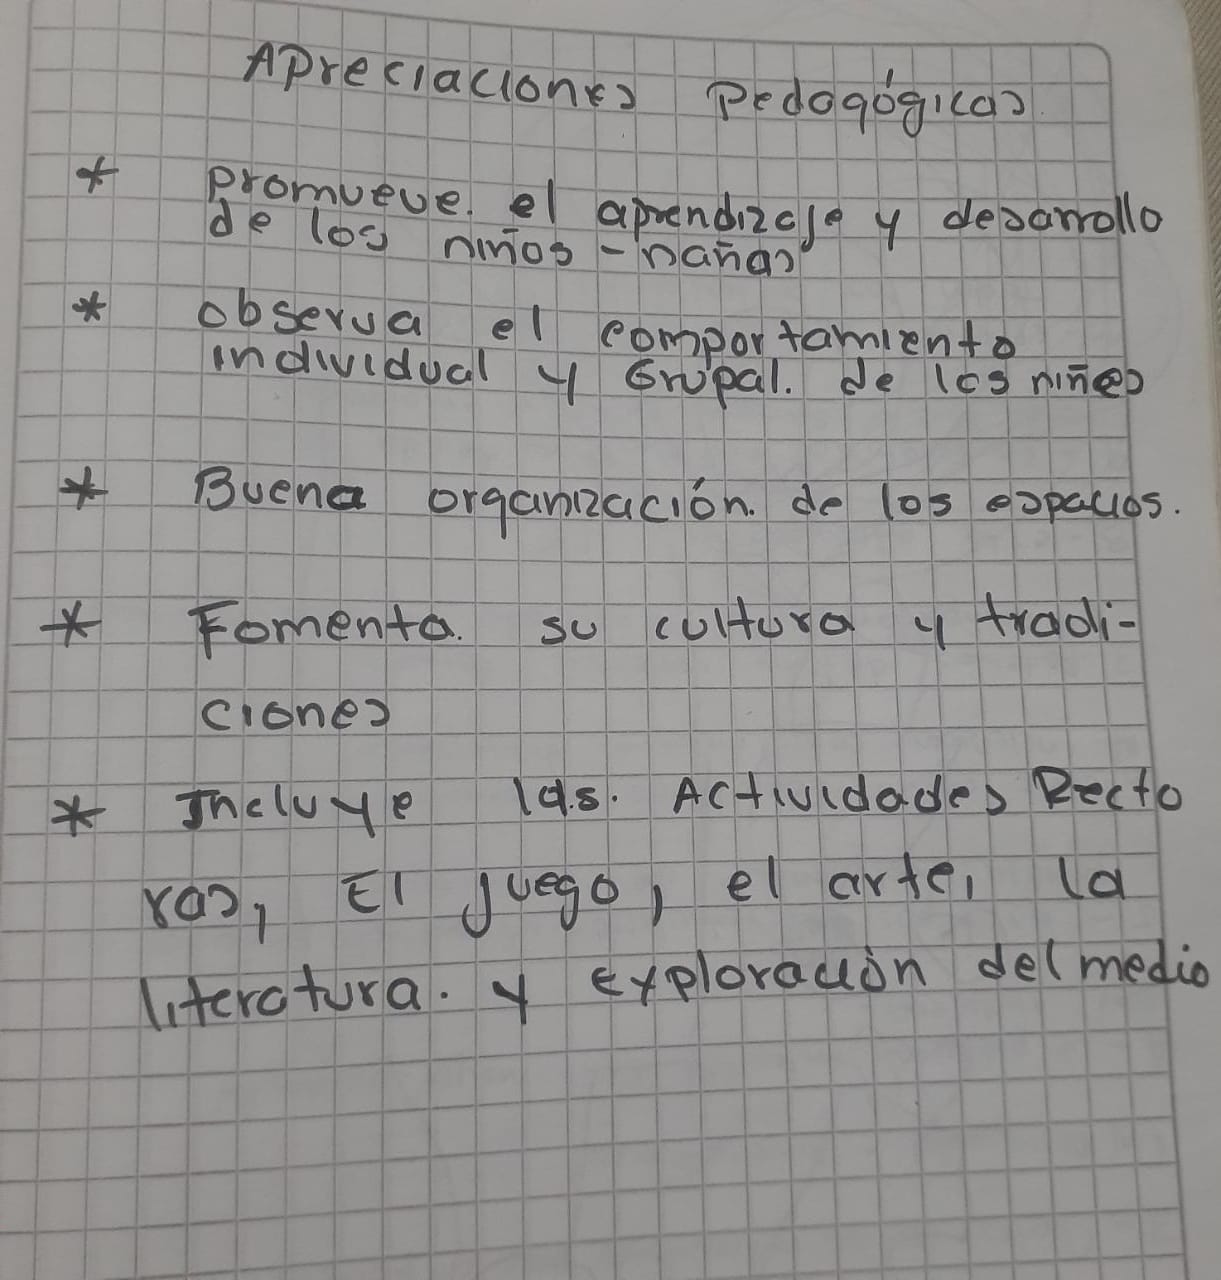 Apreciaciones Pedogógicas
* Promueve. el aprendizaje y desarrollo
de los niños - nañas
* observa el comportamiento
individual y Grupal. de los niños
* Buena organización. de los espacios.
* Fomenta. su cultura y tradi-
ciones
* Incluye las. Actividades Recto
ras, El juego, el arte, la
literatura. y exploración del medio